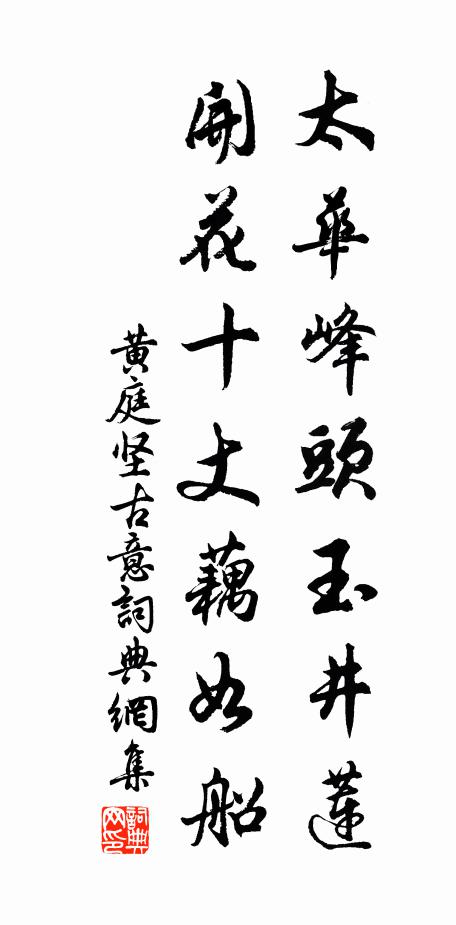 太華峰頭玉井蓮
開花十丈藕如船
黄庭坚古意詞典網集
詞典网印